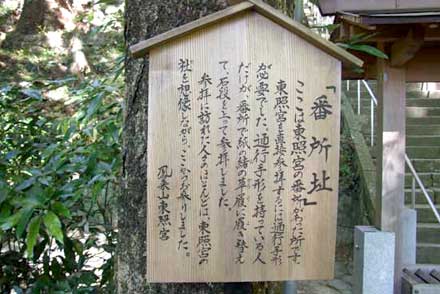 「番所址」
ここは東照宮の番所があった所です。
東照宮を直接参拝するには通行手形
が必要でした。通行手形を持っている人
だけが、番所で紙緒の草履に履き替え
て、石段を上って参拝しました。
参拝に訪れた人々のほとんどは、東照宮の
社を想像しながら、ここからお参りしました。
鳳来山東照宮